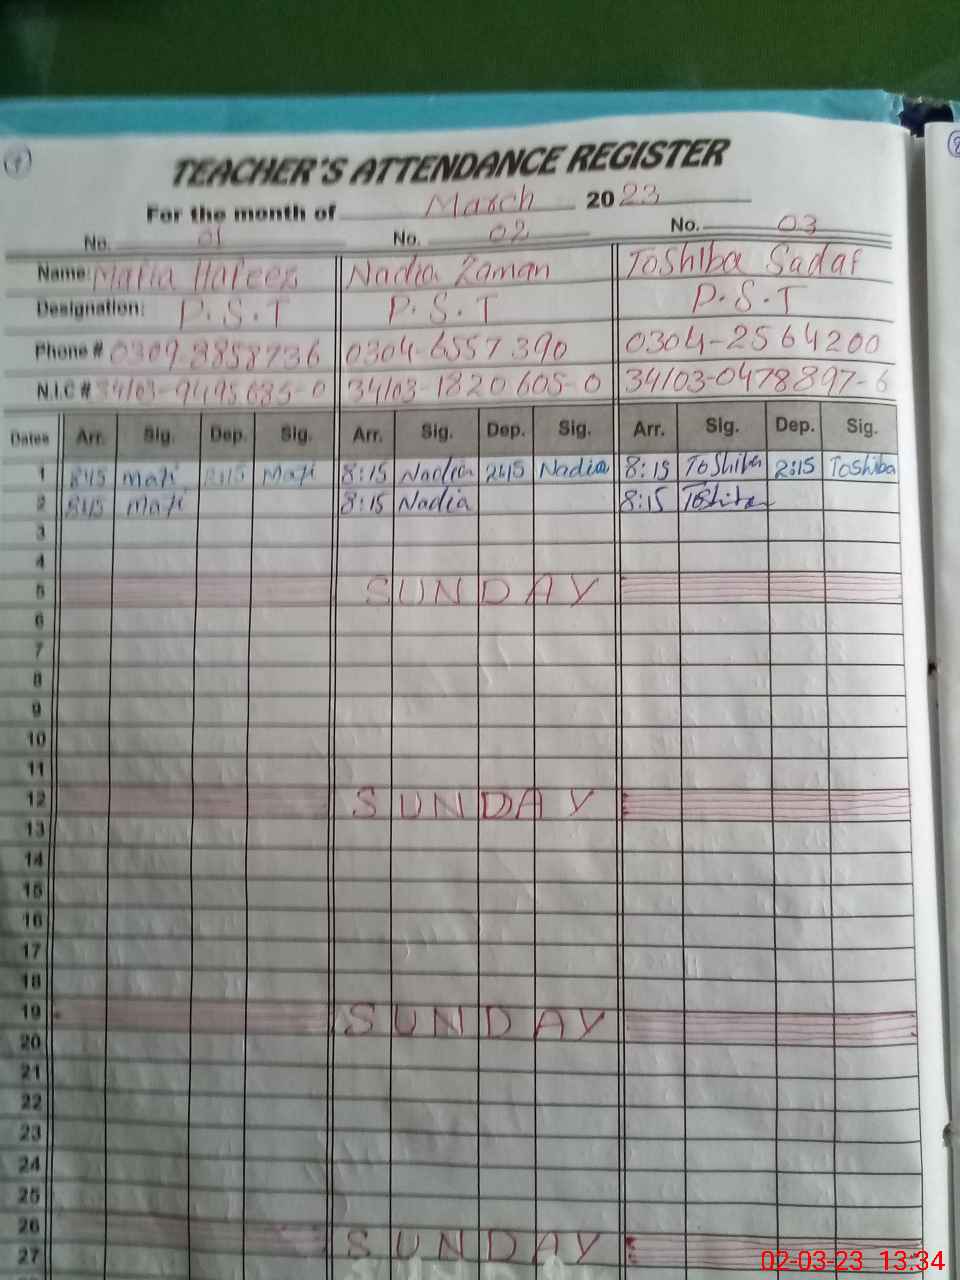 (1)
TEACHER'S ATTENDANCE REGISTER
For the month of March 2023
No. 01 No. 02 No. 03
Name: Maria Hafeez Nadia Zaman Toshiba Sadaf
Designation: P.S.T P.S.T P.S.T
Phone # 0309-8858736 0304-6557390 0304-2564200
N.I.C # 34103-9495685-0 34103-1820605-0 34103-0478897-6
Dates Arr. Sig. Dep. Sig. Arr. Sig. Dep. Sig. Arr. Sig. Dep. Sig.
1 8:15 2:15 8:15 Nadia 2:15 Nadia 8:15 Toshiba 2:15 Toshiba
2 8:15 8:15 Nadia 8:15 Toshiba
3
4
5 SUNDAY
6
7
8
9
10
11
12 SUNDAY
13
14
15
16
17
18
19 SUNDAY
20
21
22
23
24
25
26 SUNDAY
27
02-03-23 13:34